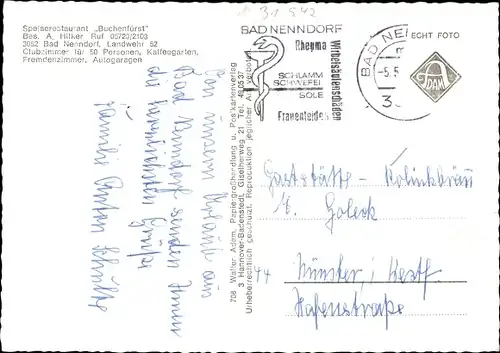 Speiserestaurant „Buchenfürst"
Bes. A. Hilker Ruf 05723/2103
3052 Bad Nenndorf, Landwehr 52
Clubzimmer für 50 Personen, Kaffeegarten,
Fremdenzimmer, Autogaragen
BAD NENNDORF
Rheuma
Wirbelsäulenschäden
SCHLAMM
SCHWEFEL
SOLE
Frauenleiden
BAD NEN
-5.5
3
ECHT FOTO
ADAM
708 Walter Adam, Papiergroßhandlung u. Postkartenverlag
3 Hannover-Badenstedt, Giselherweg 21 Tel. 49 05 37
Urheberrechtlich geschützt. Reproduktion jeglicher Art verboten
Aus unserm Urlaub aus
Bad Nenndorf senden Ihnen
die herzlichsten Grüße
Familie Anton
Gaststätte -
44 Münster i. Westf.
Hafenstraße